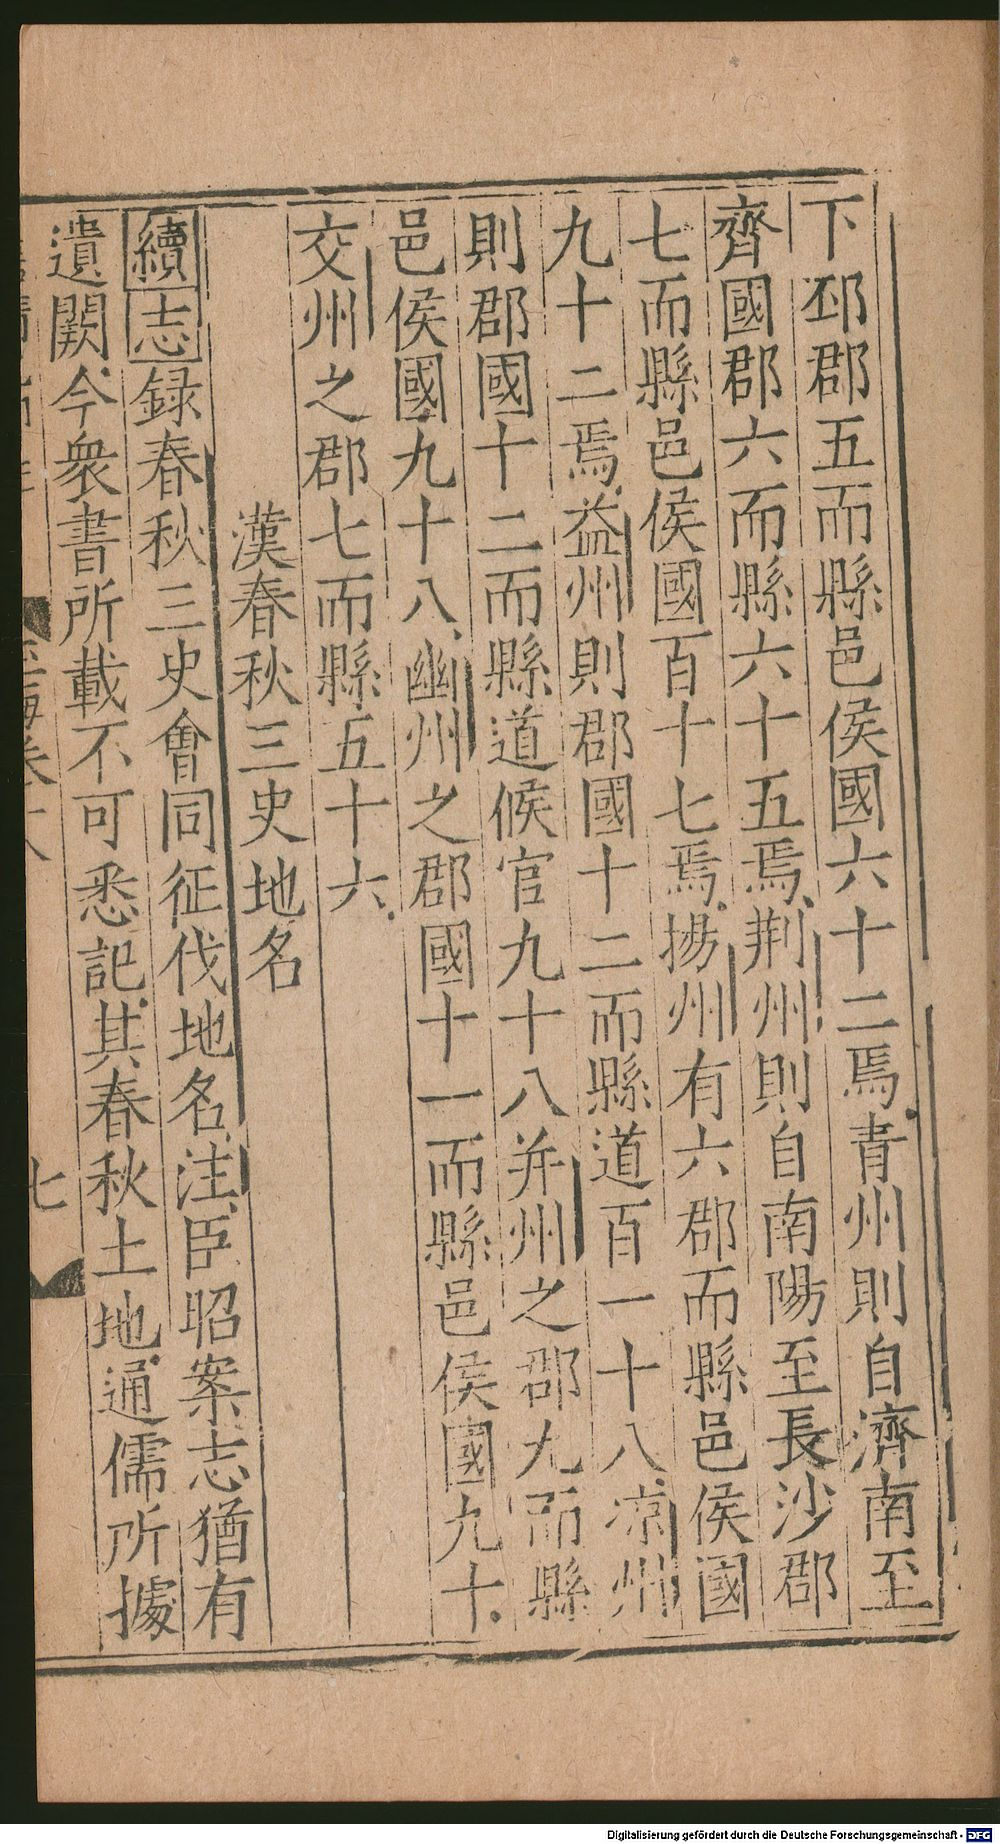 下邳郡五而縣邑侯國六十二焉青州則自濟南至
齊國郡六而縣六十五焉荆州則自南陽至長沙郡
七而縣邑侯國百十七焉揚州有六郡而縣邑侯國
九十二焉益州則郡國十二而縣道百一十八凉州
則郡國十二而縣道候官九十八并州之郡九而縣
邑侯國九十八幽州之郡國十一而縣邑侯國九十
交州之郡七而縣五十六
漢春秋三史地名
續志録春秋三史會同征伐地名注臣昭案志猶有
遺闕今衆書所載不可悉記其春秋土地通儒所據
七
Digitalisierung gefördert durch die Deutsche Forschungsgemeinschaft - DFG